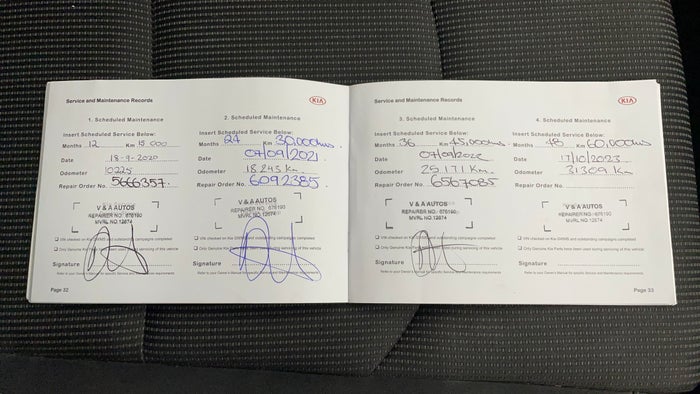 Service and Maintenance Records
KIA
1. Scheduled Maintenance
Insert Scheduled Service Below:
Months 12 Km 15 000
Date 18-9-2020
Odometer 10225
Repair Order No. 5666357.
V & A AUTOS
REPAIRER NO: 676190
MVRL NO 12674
VIN checked on Kia GWMS and outstanding campaigns completed
Only Genuine Kia Parts have been used during servicing of this vehicle
Signature
Refer to your Owner's Manual for specific Service and Maintenance requirements
Page 32
2. Scheduled Maintenance
Insert Scheduled Service Below:
Months 24 Km 30,000kms
Date 07/09/2021
Odometer 18243 Km
Repair Order No. 6092385.
V & A AUTOS
REPAIRER NO: 676190
MVRL NO 12674
VIN checked on Kia GWMS and outstanding campaigns completed
Only Genuine Kia Parts have been used during servicing of this vehicle
Signature
Refer to your Owner's Manual for specific Service and Maintenance requirements
Service and Maintenance Records
KIA
3. Scheduled Maintenance
Insert Scheduled Service Below:
Months 36 Km 45,000kms
Date 07/09/2022
Odometer 25171 Km
Repair Order No. 6567085
V & A AUTOS
REPAIRER NO: 676190
MVRL NO 12674
VIN checked on Kia GWMS and outstanding campaigns completed
Only Genuine Kia Parts have been used during servicing of this vehicle
Signature
Refer to your Owner's Manual for specific Service and Maintenance requirements
4. Scheduled Maintenance
Insert Scheduled Service Below:
Months 48 Km 60,000kms
Date 17/10/2023
Odometer 31309 Km
Repair Order No.
V & A AUTOS
REPAIRER NO: 676190
MVRL NO 12674
VIN checked on Kia GWMS and outstanding campaigns completed
Only Genuine Kia Parts have been used during servicing of this vehicle
Signature
Refer to your Owner's Manual for specific Service and Maintenance requirements
Page 33